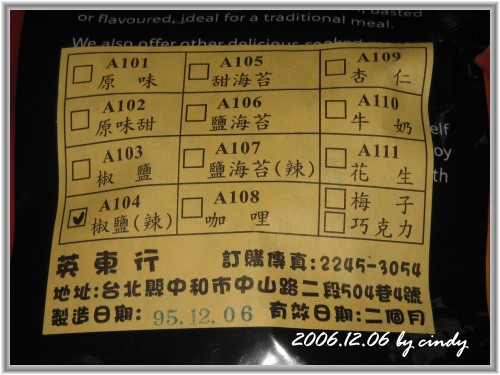 or flavoured, ideal for a traditional meal.
We also offer other delicious cooked
A101 原味
A105 甜海苔
A109 杏仁
A102 原味甜
A106 鹽海苔
A110 牛奶
A103 椒鹽
A107 鹽海苔(辣)
A111 花生
A104 椒鹽(辣)
A108 咖哩
梅子
巧克力
英東行 訂購傳真:2245-3054
地址:台北縣中和市中山路二段504巷4號
製造日期: 95.12.06 有效日期:二個月
2006.12.06 by cindy